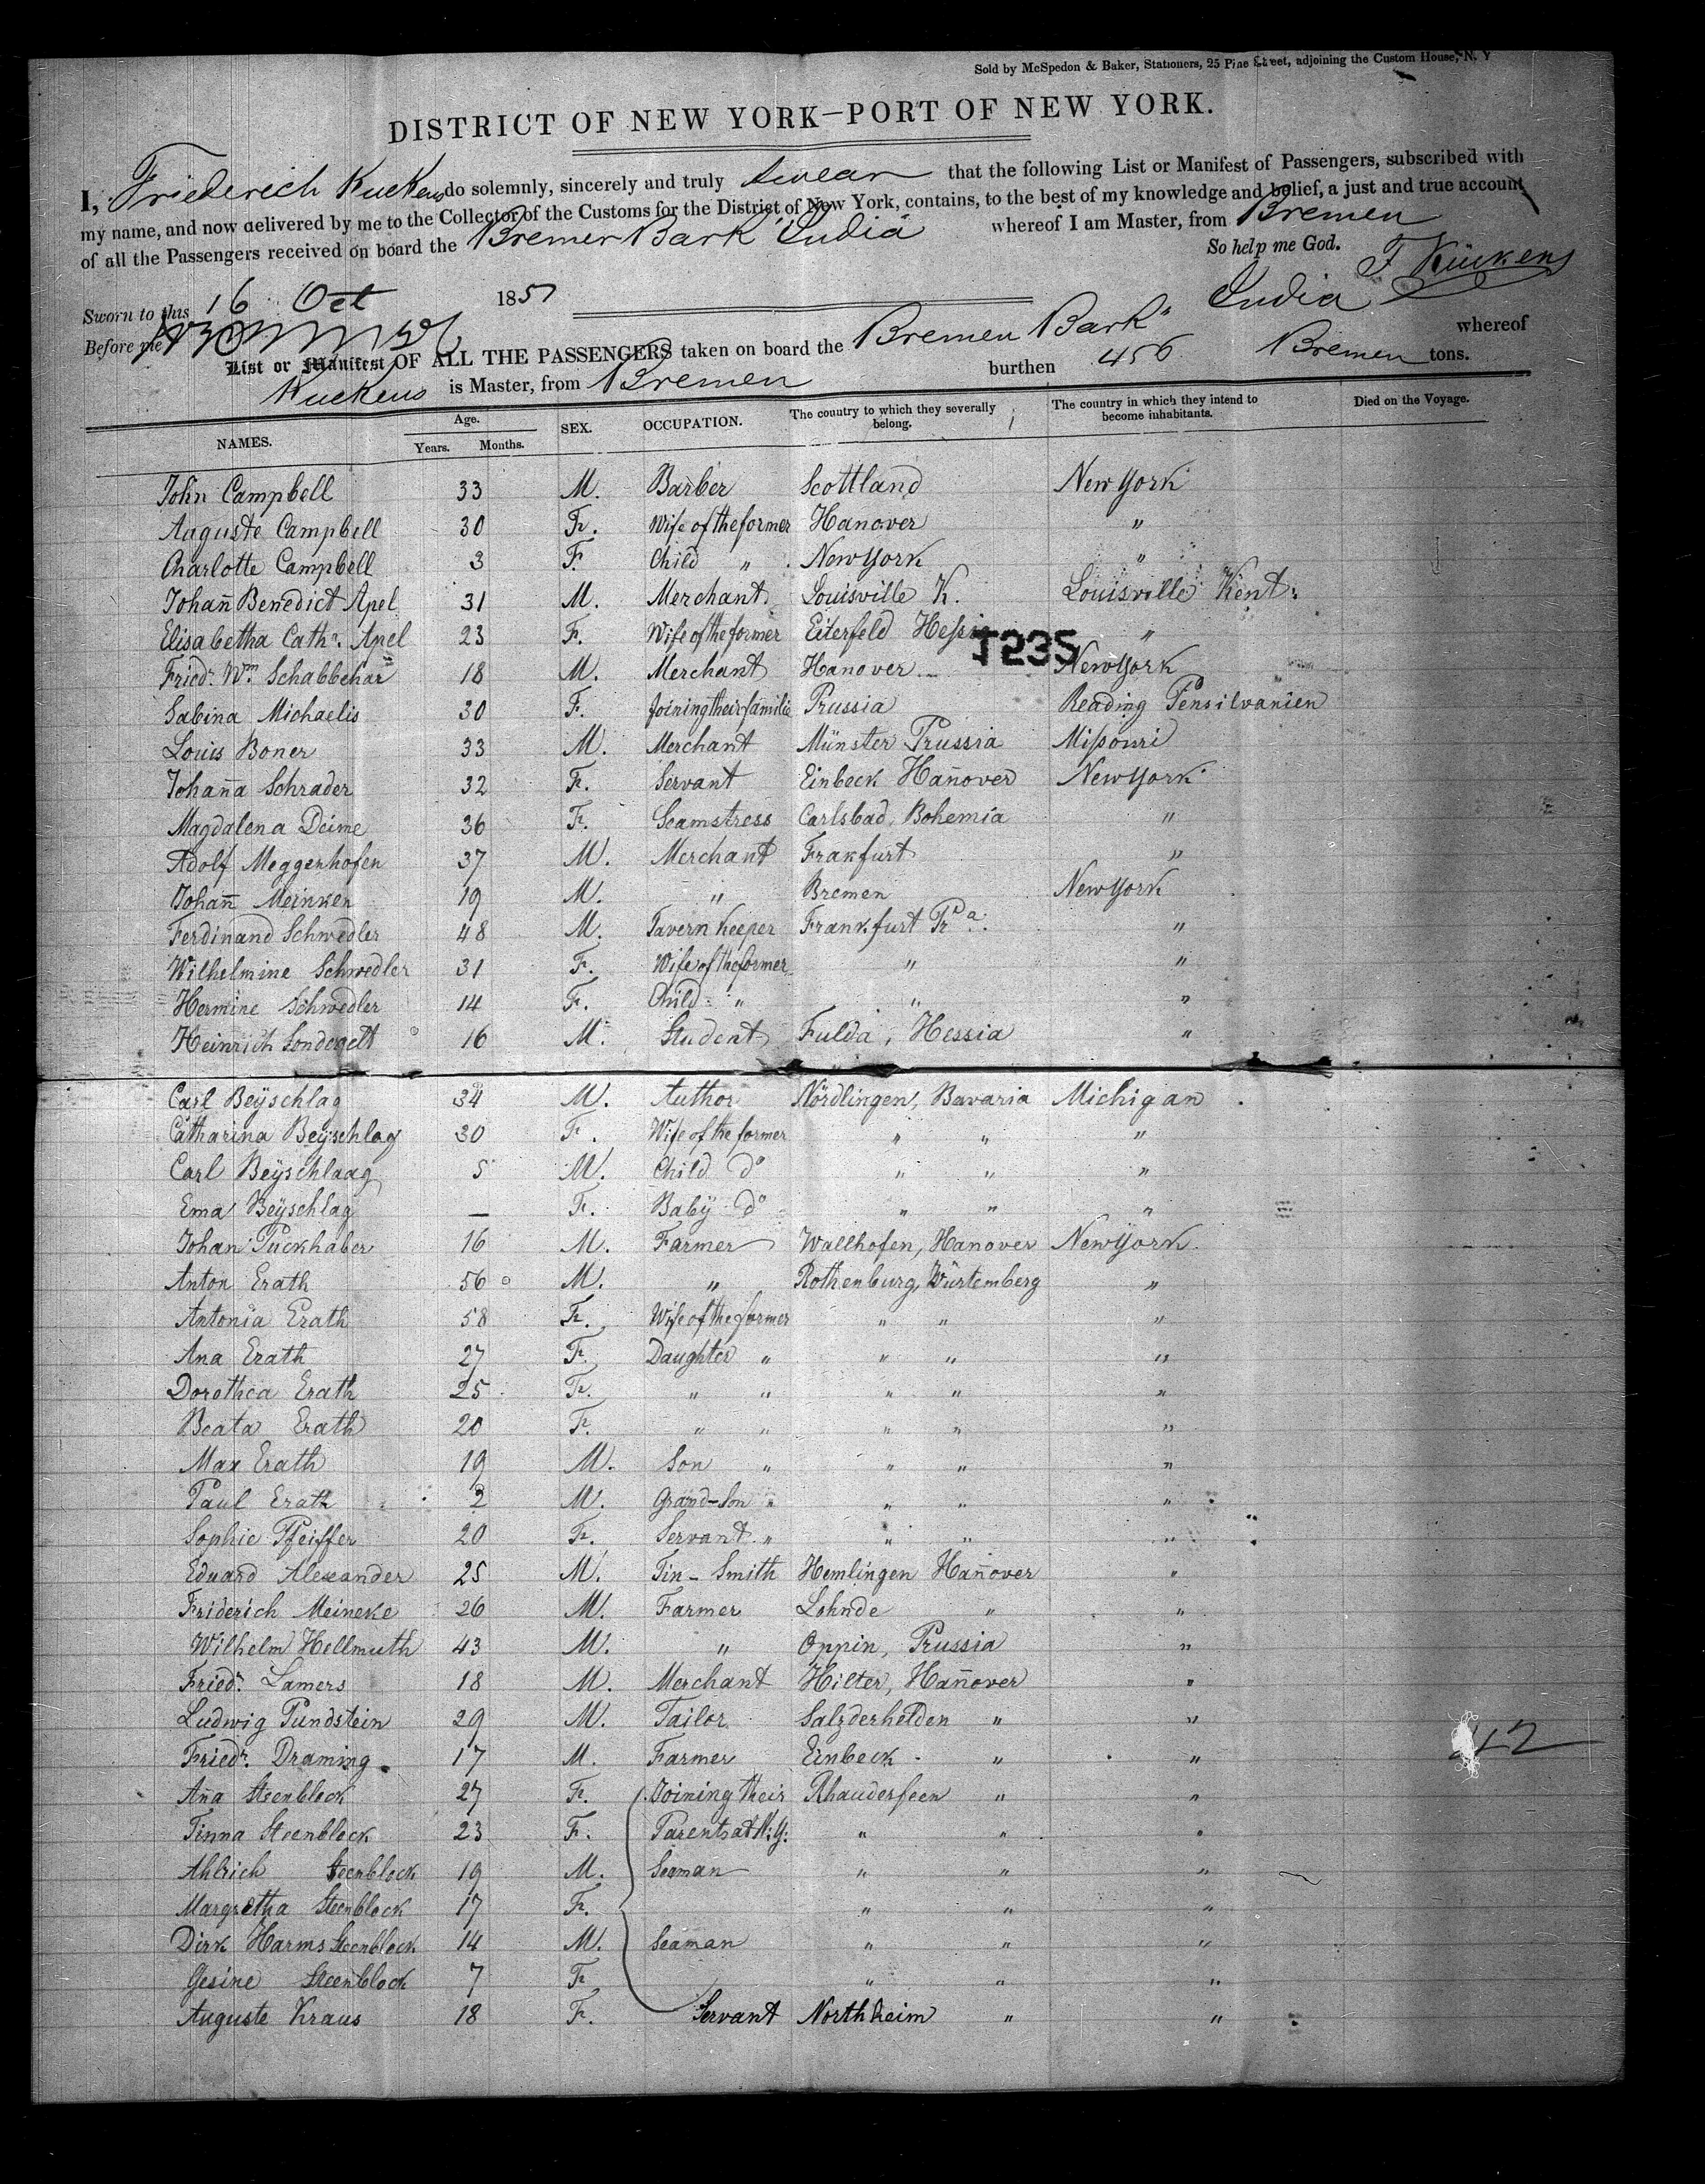 Sold by McSpedon & Baker, Stationers, 25 Pine Street, adjoining the Custom House, N. Y
DISTRICT OF NEW YORK—PORT OF NEW YORK.
I, Friederich Kuckens do solemnly, sincerely and truly swear that the following List or Manifest of Passengers, subscribed with
my name, and now delivered by me to the Collector of the Customs for the District of New York, contains, to the best of my knowledge and belief, a just and true account
of all the Passengers received on board the Bremer Bark "India" whereof I am Master, from Bremen
So help me God.
Sworn to this 16 Oct 1851 F Kückens
Before me
List or Manifest OF ALL THE PASSENGERS taken on board the Bremen Bark India whereof
Kuckens is Master, from Bremen burthen 456 Bremen tons.
NAMES. Age. Years. Months. SEX. OCCUPATION. The country to which they severally belong. The country in which they intend to become inhabitants. Died on the Voyage.
John Campbell 33 M. Barber Scottland New York
Auguste Campbell 30 F. Wife of the former Hanover "
Charlotte Campbell 3 F. Child " New York "
Johan̄ Benedict Apel 31 M. Merchant Louisville K. Louisville Kent:
Elisabetha Cathr. Apel 23 F. Wife of the former Eiterfeld Hessia "
T235
Friedr. Wm. Schabbehar 18 M. Merchant Hanover New York
Sabina Michaelis 30 F. Joining their familie Prussia Reading Pensilvanien
Louis Boner 33 M. Merchant Münster Prussia Missouri
Johan̄a Schrader 32 F. Servant Einbeck Han̄over New York
Magdalena Deime 36 F. Seamstress Carlsbad, Bohemia "
Adolf Meggenhofen 37 M. Merchant Frakfurt "
Johan̄ Meinken 19 M. " Bremen New York
Ferdinand Schwedler 48 M. Tavern Keeper Frankfurt Pra. "
Wilhelmine Schwedler 31 F. Wife of the former " "
Hermine Schwedler 14 F. Child " " "
Heinrich Sondergelt 16 M. Student Fulda, Hessia "
Carl Beÿschlag 34 M. Author Nördlingen, Bavaria Michigan
Catharina Beÿschlag 30 F. Wife of the former " " "
Carl Beÿschlaag 5 M. Child do " " "
Ema Beÿschlag — F. Baby do " " "
Johan Puckhaber 16 M. Farmer Wallhofen, Hanover New York
Anton Erath 56 M. " Rothenburg, Würtemberg "
Antonia Erath 58 F. Wife of the former " " "
Ana Erath 27 F. Daughter " " " "
Dorothea Erath 25 F. " " " " "
Beata Erath 20 F. " " " " "
Max Erath 19 M. Son " " " "
Paul Erath 2 M. Grand-Son " " " "
Sophie Pfeiffer 20 F. Servant " " " "
Eduard Alexander 25 M. Tin-Smith Hemlingen Han̄over "
Friderich Meineke 26 M. Farmer Lohnde " "
Wilhelm Hellmuth 43 M. " Oppin, Prussia "
Friedr. Lamers 18 M. Merchant Hilter, Han̄over "
Ludwig Pundstein 29 M. Tailor Salzderhelden " "
Friedr. Draming 17 M. Farmer Einbeck " "
42
An̄a Steenblock 27 F. Joining their Rhauderfeen " "
Tinna Steenblock 23 F. Parents at N:Y: " " "
Ahlrich Steenblock 19 M. Seaman " " "
Margretha Steenblock 17 F. " " "
Dirk Harms Steenblock 14 M. Seaman " " "
Gesine Steenblock 7 F " " "
Auguste Kraus 18 F. Servant Northheim " "